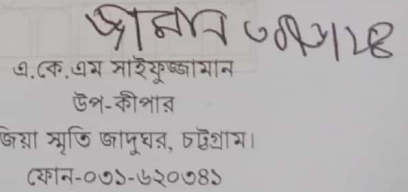 এ.কে.এম সাইফুজ্জামান
উপ-কীপার
জিয়া স্মৃতি জাদুঘর, চট্টগ্রাম।
ফোন-০৩১-৬২০৩৪১